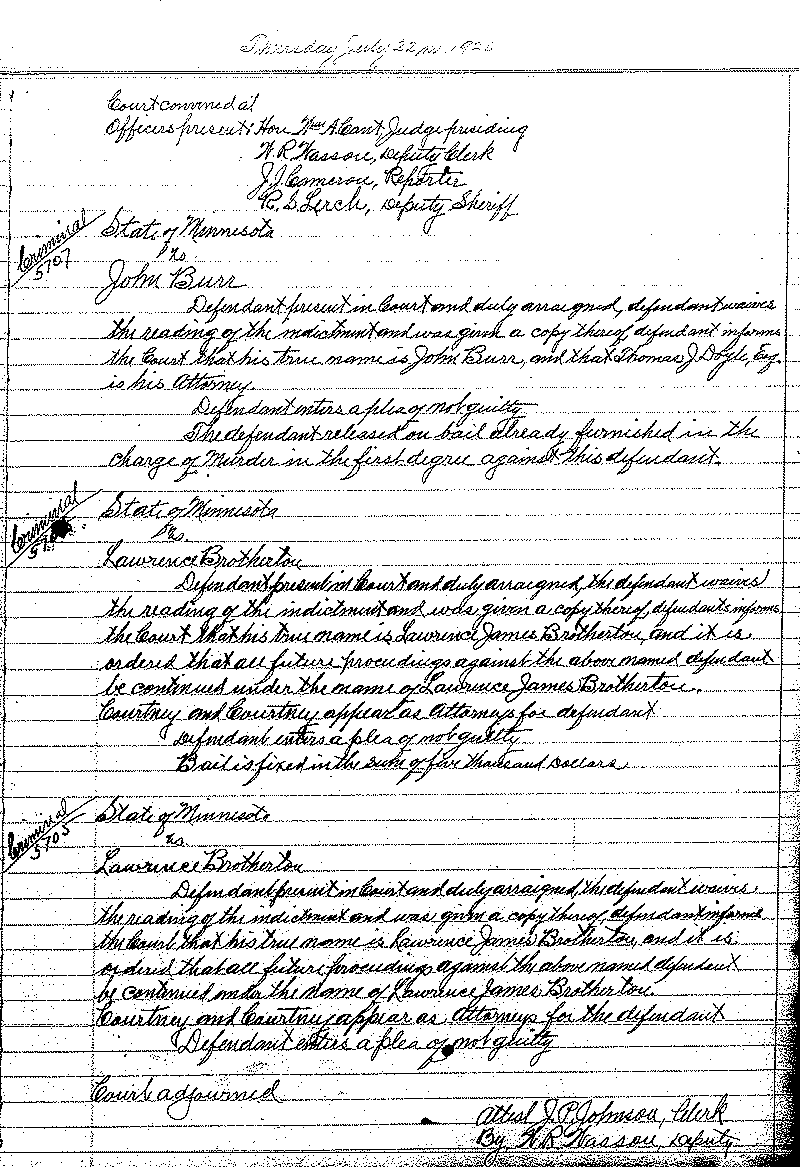 Thursday July 22nd. 1920
Court convened at
Officers present: Hon Wm A Cant, Judge presiding
W. R Wasson, Deputy Clerk
J J Cameron, Reporter
R. S Lerch, Deputy Sheriff
Criminal
5707
State of Minnesota
vs.
John Burr
Defendant present in Court and duly arraigned, defendant waives
the reading of the indictment and was given a copy thereof, defendant informs
the Court that his true name is John Burr, and that Thomas J. Doyle, Esq.
is his Attorney.
Defendant enters a plea of not guilty
The defendant released on bail already furnished in the
charge of Murder in the first degree against this defendant.
Criminal
State of Minnesota
vs.
Lawrence Brotherton
Defendant present in Court and duly arraigned, the defendant waives
the reading of the indictment and was given a copy thereof, defendants informs
the Court that his true name is Lawrence James Brotherton, and it is
ordered that all future proceedings against the above named defendant
be continued under the name of Lawrence James Brotherton.
Courtney and Courtney appear as Attorneys for defendant
Defendant enters a plea of not guilty
Bail is fixed in the sum of five thousand Dollars
Criminal
5705
State of Minnesota
vs.
Lawrence Brotherton
Defendant present in Court and duly arraigned, the defendant waives
the reading of the indictment and was given a copy thereof, defendant informs
the Court that his true name is Lawrence James Brotherton, and it is
ordered that all future proceedings against the above named defendant
be continued under the name of Lawrence James Brotherton.
Courtney and Courtney appear as Attorneys for the defendant
Defendant enters a plea of not guilty
Court adjourned
Attest J. P. Johnson, Clerk
By W. R Wasson, Deputy